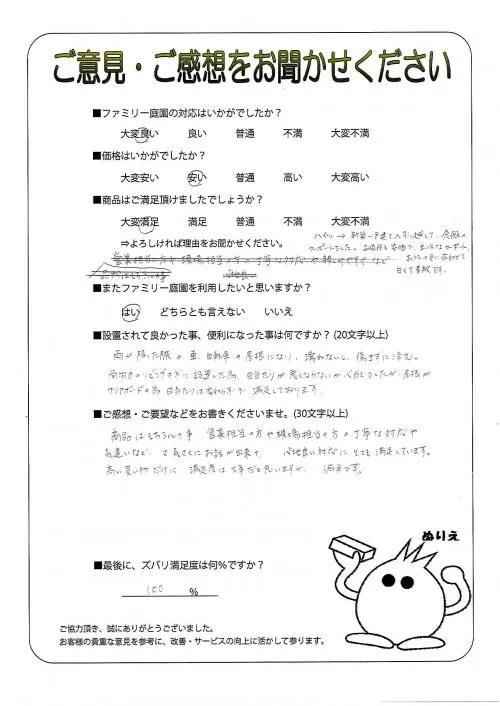 ご意見・ご感想をお聞かせください
■ファミリー庭園の対応はいかがでしたか？
大変良い 良い 普通 不満 大変不満
■価格はいかがでしたか？
大変安い 安い 普通 高い 大変高い
■商品はご満足頂けましたでしょうか？
大変満足 満足 普通 不満 大変不満
⇒よろしければ理由をお聞かせください。
ハイツ→新築一戸建て入引っ越しで、念願の
カーポートでした。お値段も安価で、
白くて素敵です。
営業担当の方や現場担当の方の丁寧な対応や親しみやすさなど
■またファミリー庭園を利用したいと思いますか？
はい どちらとも言えない いいえ
■設置されて良かった事、便利になった事は何ですか？(20文字以上)
雨が降った際の車、自転車の屋根になり、濡れないし、傷まずに済む。
南向きのリビングの方に設置した為、日当たりが悪くならないか心配でしたが、屋根が
クリアボードの為 日当たりは変わらずで 満足しております。
■ご感想・ご要望などをお書きくださいませ。(30文字以上)
商品はもちろんの事 営業担当の方や現場担当の方の丁寧な対応や
気遣いなど、 気さくにお話が出来て 心地良い対応に とても満足しています。
高い買い物だけに 満足度は大事だと思いますが、 満足です。
■最後に、ズバリ満足度は何%ですか？
100 %
ぬりえ
ご協力頂き、誠にありがとうございました。
お客様の貴重な意見を参考に、改善・サービスの向上に活かして参ります。